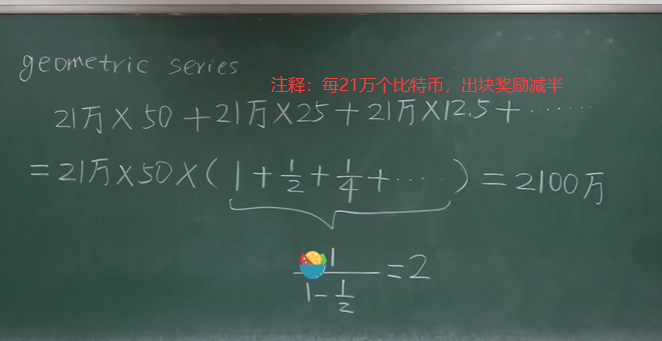 geometric series
注释：每21万个比特币，出块奖励减半
21万×50+21万×25+21万×12.5+······
=21万×50×(1+1/2+1/4+·····)=2100万
1/(1-1/2)=2